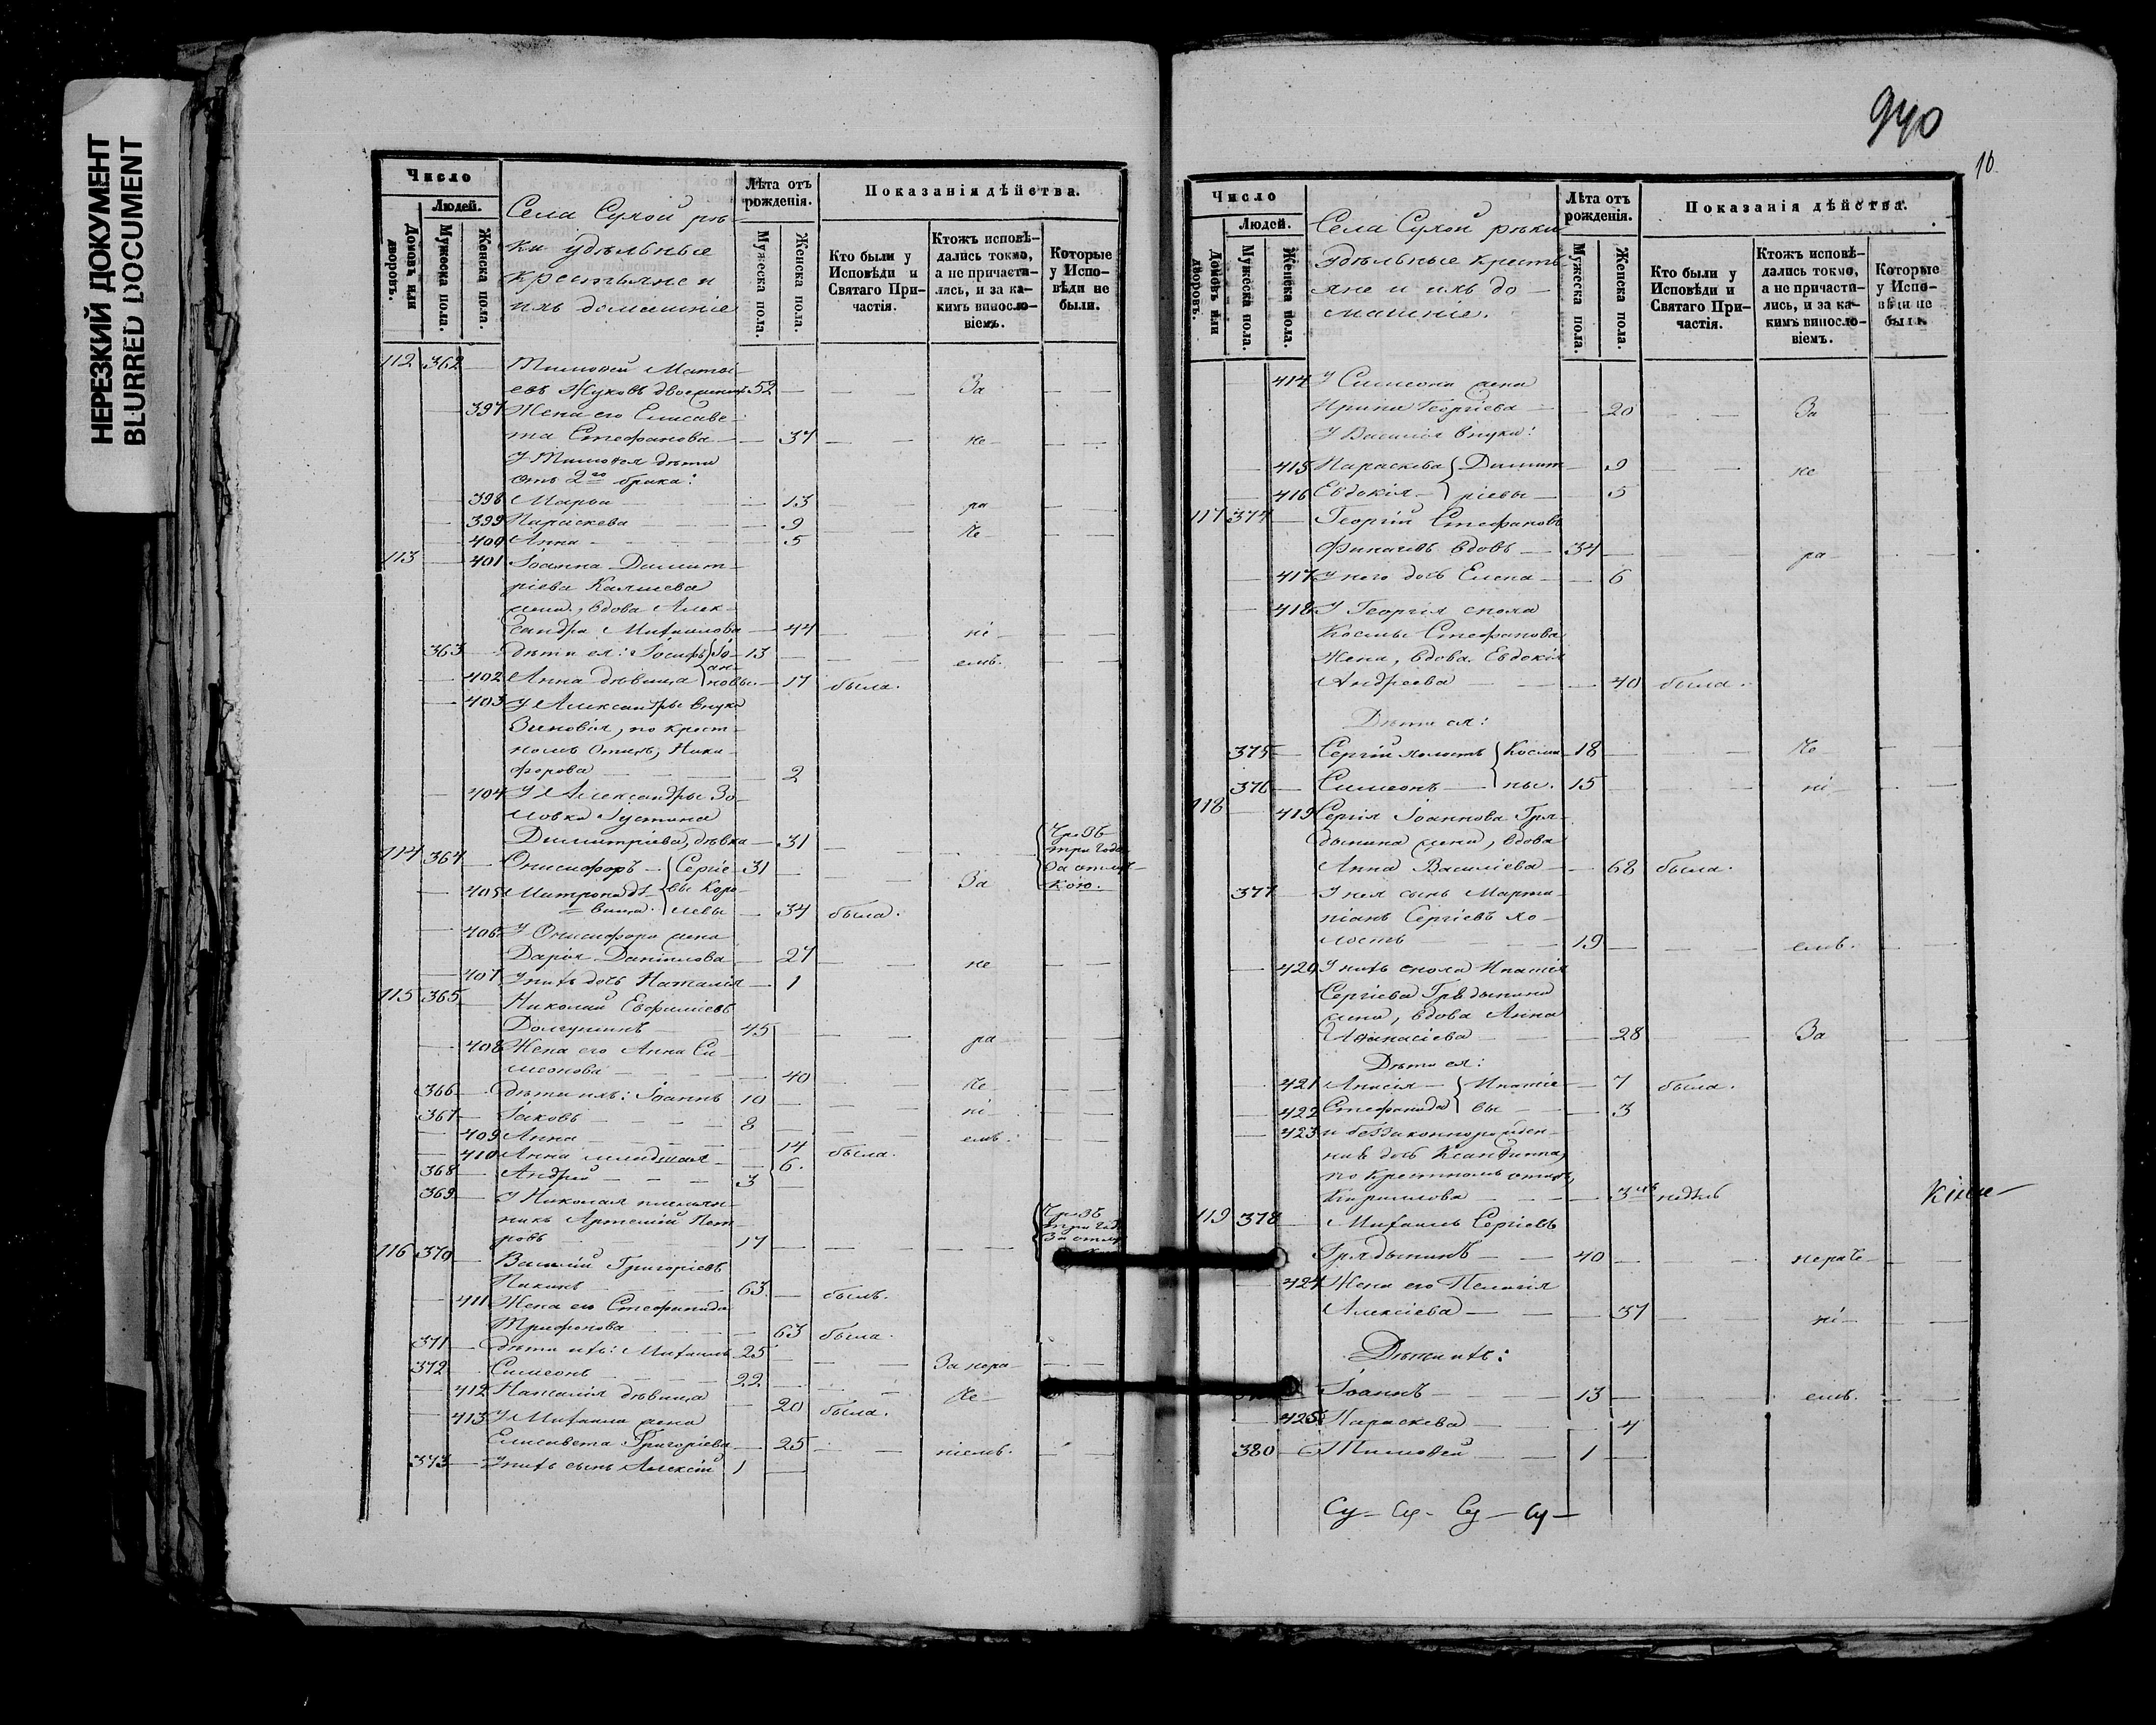 НЕРЕЗКИЙ ДОКУМЕНТ
BLURRED DOCUMENT
Число
Людей.
Домовъ или дворовъ.
Мужеска пола.
Женска пола.
Села Сухой рѣ-
ки удѣльные
крестьяне и
ихъ домашніе
Лѣта отъ рожденія.
Мужеска пола.
Женска пола.
Показанія дѣйства.
Кто были у Исповѣди и Святаго Причастія.
Ктожъ исповѣдались токмо, а не причастились, и за какимъ винословіемъ.
Которые у Исповѣди не были.
112 362 Тимоѳей Матѳі-
евъ Жуковъ двоеженецъ 52 За
397 Жена его Елисаве-
та Стефанова 37 не
У Тимоѳея дѣти
отъ 2го брака:
398 Марѳа 13 ра
399 Параскева 9
400 Анна 5 че
113 401 Іоанна Димит-
ріева
жена, вдова Алек-
сандра Михаилова 44 ні
363 дѣти ея: Іосифъ Іо- 13 емъ.
402 Анна дѣвица анновы 17 была.
403 У Александры внука
Зиновія, по крест-
номъ отцѣ, Ники-
форова 2
404 У Александры зо-
ловка Іустина
Димитріева, дѣвка 31 Чрезъ три года за отлуч-кою.
114 364 Онисифоръ Сергіе- 31 За
405 Митродора вы Коро-
вица. левы 34 была.
406 У Онисифора жена
Дарія Даніилова 27 не
407 У нихъ дочь Наталія 1
115 365 Николай Евфиміевъ
Долгушинъ 45 ра
408 Жена его Анна Си-
меонова 40 че
366 дѣти ихъ: Іоаннъ 10 ні
367 Іаковъ 8
409 Анна 14 была. емъ.
410 Анна младшая 6.
368 Андрей 3
369 У Николая племян-
никъ Артемій Пет-
ровъ 17 Чрезъ три года за отлу
116 370 Василій Григоріевъ
63 былъ.
411 Жена его Стефанида
Трифонова 63 была.
371 дѣти ихъ: Михаилъ 25 За нера-
372 Симеонъ 22 че
412 Наталія дѣвица 20 была.
413 У Михаила жена
Елисавета Григоріева 25 ніемъ.
373 У нихъ сынъ Алексій 1
940
10
Число
Людей.
Домовъ или дворовъ.
Мужеска пола.
Женска пола.
Села Сухой рѣки
Удѣльные кресть-
яне и ихъ до-
машніе.
Лѣта отъ рожденія.
Мужеска пола.
Женска пола.
Показанія дѣйства.
Кто были у Исповѣди и Святаго Причастія.
Ктожъ исповѣдались токмо, а не причастились, и за какимъ винословіемъ.
Которые у Исповѣди не были.
414 У Симеона жена
Ирина Георгіева 20 За
У Василія внуки:
415 Параскева Димит- 9 не
416 Евдокія ріевы 5
117 374 Георгій Стефановъ
вдовъ 34 ра
417 У него дочь Елена 6
418 У Георгія сноха
Космы Стефанова
жена, вдова Евдокія
Андреева 40 была.
Дѣти ея:
375 Сергій холостъ Косми- 18 че
376 Симеонъ ны. 15 ні
118 419 Сергія Іоаннова Гря-
дынина жена, вдова
Анна Василіева 68 была.
377 У нея сынъ Марти-
ніанъ Сергіевъ хо-
лостъ 19 емъ.
420 У нихъ сноха Ипатія
Сергіева Грядынина
жена, вдова Анна
Аѳанасіева 28 За
Дѣти ея:
421 Анисія Ипатіе- 7 была.
422 Стефанида вы 3
423 и беззаконнорожден-
ная дочь Ксанѳиппа,
по крестномъ отцѣ,
Кириллова 3хъ недѣль
119 378 Михаилъ Сергіевъ
Грядынинъ 40 нераче-
424 Жена его Пелагія
Алексіева 37 ні
Дѣти ихъ:
Іоаннъ 13 емъ.
425 Параскева 4
380 Тимоѳей 1
Су- Су- Су- Су-